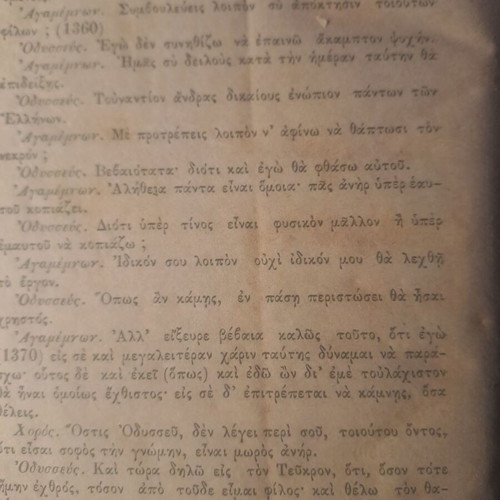 Ἀγαμέμνων. Συμβουλεύεις λοιπὸν σὺ ἀπόκτησιν τοιούτων
φίλων ; (1360)
Ὀδυσσεύς. Ἐγὼ δὲν συνηθίζω νὰ ἐπαινῶ ἄκαμπτον ψυχήν.
Ἀγαμέμνων. Ἡμᾶς σὺ δειλοὺς κατὰ τὴν ἡμέραν ταύτην θὰ
ἐπιδείξῃς.
Ὀδυσσεύς. Τοὐναντίον ἄνδρας δικαίους ἐνώπιον πάντων τῶν
Ἑλλήνων.
Ἀγαμέμνων. Μὲ προτρέπεις λοιπὸν ν' ἀφίνω νὰ θάπτωσι τὸν
νεκρόν ;
Ὀδυσσεύς. Βεβαιότατα· διότι καὶ ἐγὼ θὰ φθάσω αὐτοῦ.
Ἀγαμέμνων. Ἀλήθεια πάντα εἶναι ὅμοια· πᾶς ἀνὴρ ὑπὲρ ἑαυ-
τοῦ κοπιάζει.
Ὀδυσσεύς. Διότι ὑπὲρ τίνος εἶναι φυσικὸν μᾶλλον ἢ ὑπὲρ
ἐμαυτοῦ νὰ κοπιάζω ;
Ἀγαμέμνων. Ἰδικόν σου λοιπὸν οὐχὶ ἰδικόν μου θὰ λεχθῇ
τὸ ἔργον.
Ὀδυσσεύς. Ὅπως ἂν κάμῃς, ἐν πάσῃ περιστώσει θὰ ἦσαι
χρηστός.
Ἀγαμέμνων. Ἀλλ' εἴξευρε βέβαια καλῶς τοῦτο, ὅτι ἐγὼ
(1370) εἰς σὲ καὶ μεγαλειτέραν χάριν ταύτης δύναμαι νὰ παρά-
σχω· οὗτος δὲ καὶ ἐκεῖ (ὅπως) καὶ ἐδῶ ὢν δι' ἐμὲ τοὐλάχιστον
θὰ ἦναι ὁμοίως ἔχθιστος· εἰς σὲ δ' ἐπιτρέπεται νὰ κάμνῃς, ὅσα
θέλεις.
Χορός. Ὅστις Ὀδυσσεῦ, δὲν λέγει περὶ σοῦ, τοιούτου ὄντος,
ὅτι εἶσαι σοφὸς τὴν γνώμην, εἶναι μωρὸς ἀνήρ.
Ὀδυσσεύς. Καὶ τώρα δηλῶ εἰς τὸν Τεῦκρον, ὅτι, ὅσον τότε
ἤμην ἐχθρός, τόσον ἀπὸ τοῦδε εἶμαι φίλος· καὶ θέλω τὸν θα-